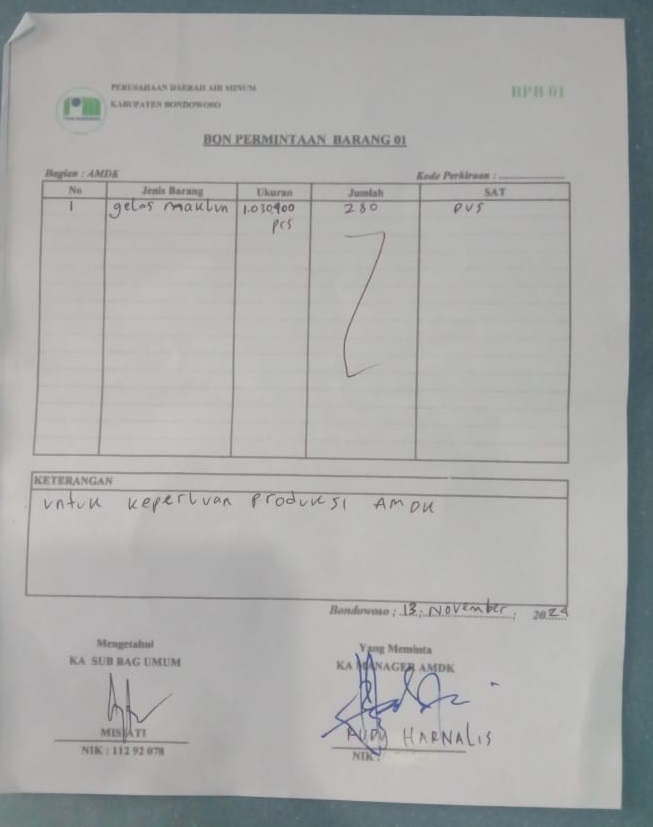 PERUSAHAAN DAERAH AIR MINUM
KABUPATEN BONDOWOSO
BPB 01
BON PERMINTAAN BARANG 01
Bagian : AMDK
Kode Perkiraan :
No Jenis Barang Ukuran Jumlah SAT
1 gelas maklin 1.030.400 280 DUS
pcs
KETERANGAN
untuk keperluan produksi AMDK
Bondowoso ; 13 November ; 2024
Mengetahui
KA SUB BAG UMUM
MISJATI
NIK : 112 92 078
Yang Meminta
KA MANAGER AMDK
RUDY HARNALIS
NIK :